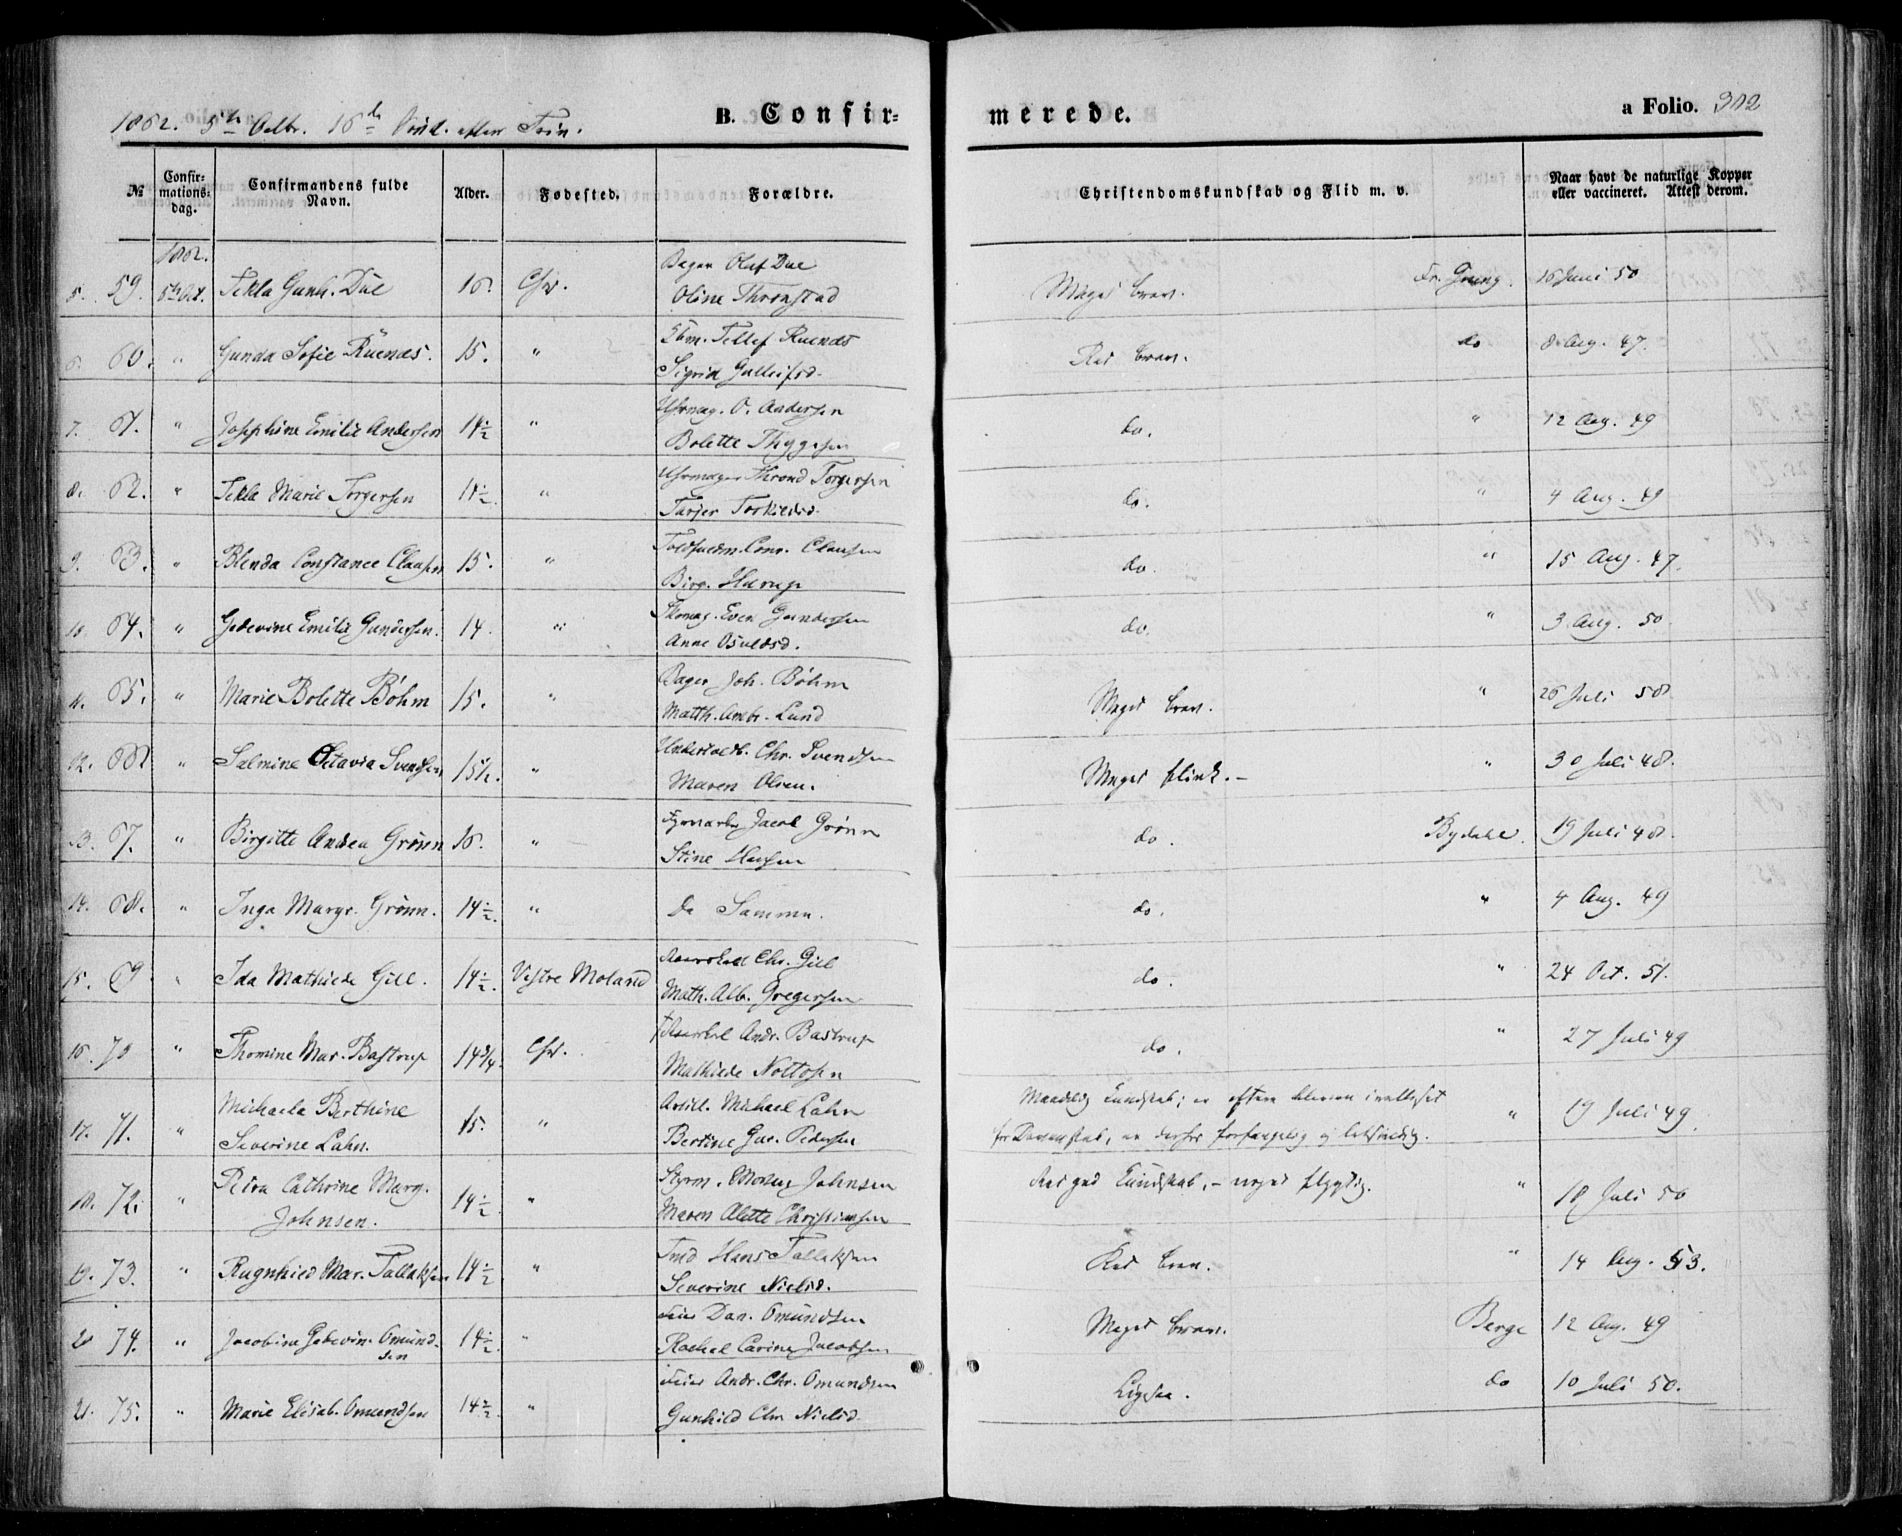 1862. 5te Octbr. 16de Sönd. efter Trin.
B. Confir-
merede.
a Folio. 302
№
Confir-
mations-
dag.
Confirmandens fulde
Navn.
Alder.
Fødested.
Forældre.
Christendomskundskab og Flid m. v.
Naar havt de naturlige Kopper
eller vaccineret. Attest derom.
1862.
5. 59. 5te Oct. Tekla Gunh. Düe 16. Chr.
Bager Olaf Düe
Oline Thronstad
Meget brav. 16 Juni 50
6. 60. " Gunda Sofie Rüenæs. 15. "
Sbm. Tellef Ruenæs
Sigrid
Ret brav. do 8 Aug. 47.
7. 61. " Josephine Emilie Andersen 14½ "
Uhrmag. O. Andersen
Bolette Thygesen
do. " 12 Aug. 49
8. 62. " Tekla Marie Torgersen 14½. "
Uhrmager Thrond Torgersen
Tarjer Torkildsd.
do. " 4 Aug. 49
9. 63. " Blenda Constance Clausen 15. "
Conr. Clausen
Birg. Harup
do. " 15 Aug. 47.
10. 64. " Gedevine Emilie Gundersen. 14. "
Skomag. Even Gundersen
Anne Osuldsd.
do. " 3 Aug. 50
11. 65. " Marie Bolette Bøhm 15. "
Bager Joh. Bøhm
Matth. Ambr. Lund
Meget brav. " 26 Juli 50.
12. " Salmine Octavia Svendsen 15½. "
Chr. Svendsen
Maren Olsen.
Meget flink. - " 30 Juli 48.
13. 67. " Birgitte Andrea Grønn 16. "
Jacob Grønn
Stine Hansen
do. Bydahl. 19 Juli 48.
14. 68. " Inga Margr. Grønn. 14½. "
De Samme.
do. " 4 Aug. 49
15. 69 " Ida Mathilde Gill. 14½. Vestre Moland
Chr. Gill
Math. Alb. Gregersen
do. " 24 Oct. 51.
16. 70 " Thomine Mar. Bastrup 14¾. Chr.
Andr. Bastrup
Mathilde Nottosen
do. " 27 Juli 49
17. 71. " Michaela Berthine
Severine Lahn. 15. "
Artill. Michael Lahn
Bertine Gur. Pedersen
Maadelig Kundskab; er oftere bleven
for Dovenskab, er derfor og letsindig. " 19 Juli 49.
18. 72. " Petra Cathrine Marg.
Johnsen. 14½ "
Styrm. Johnsen
Maren Alette Christiansen
Ret god Kundskab, - noget flygtig. " 18 Juli 50
19. 73. " Ragnhild Mar. Tallaksen 14½ "
Hans Tallaksen
Severine Nielsd.
Ret brav. " 14 Aug. 53.
20 74. " Jacobine Gedevin. Omund-
sen 14½. "
Feier Dan. Omundsen
Rachel Carine Jacobsen
Meget brav. Berge 12 Aug. 49
21. 75. " Marie Elisab. Omundsen 14½ "
Feier Andr. Chr. Omundsen
Gunhild Chr. Nielsd.
Ligesaa. do 10 Juli 50.